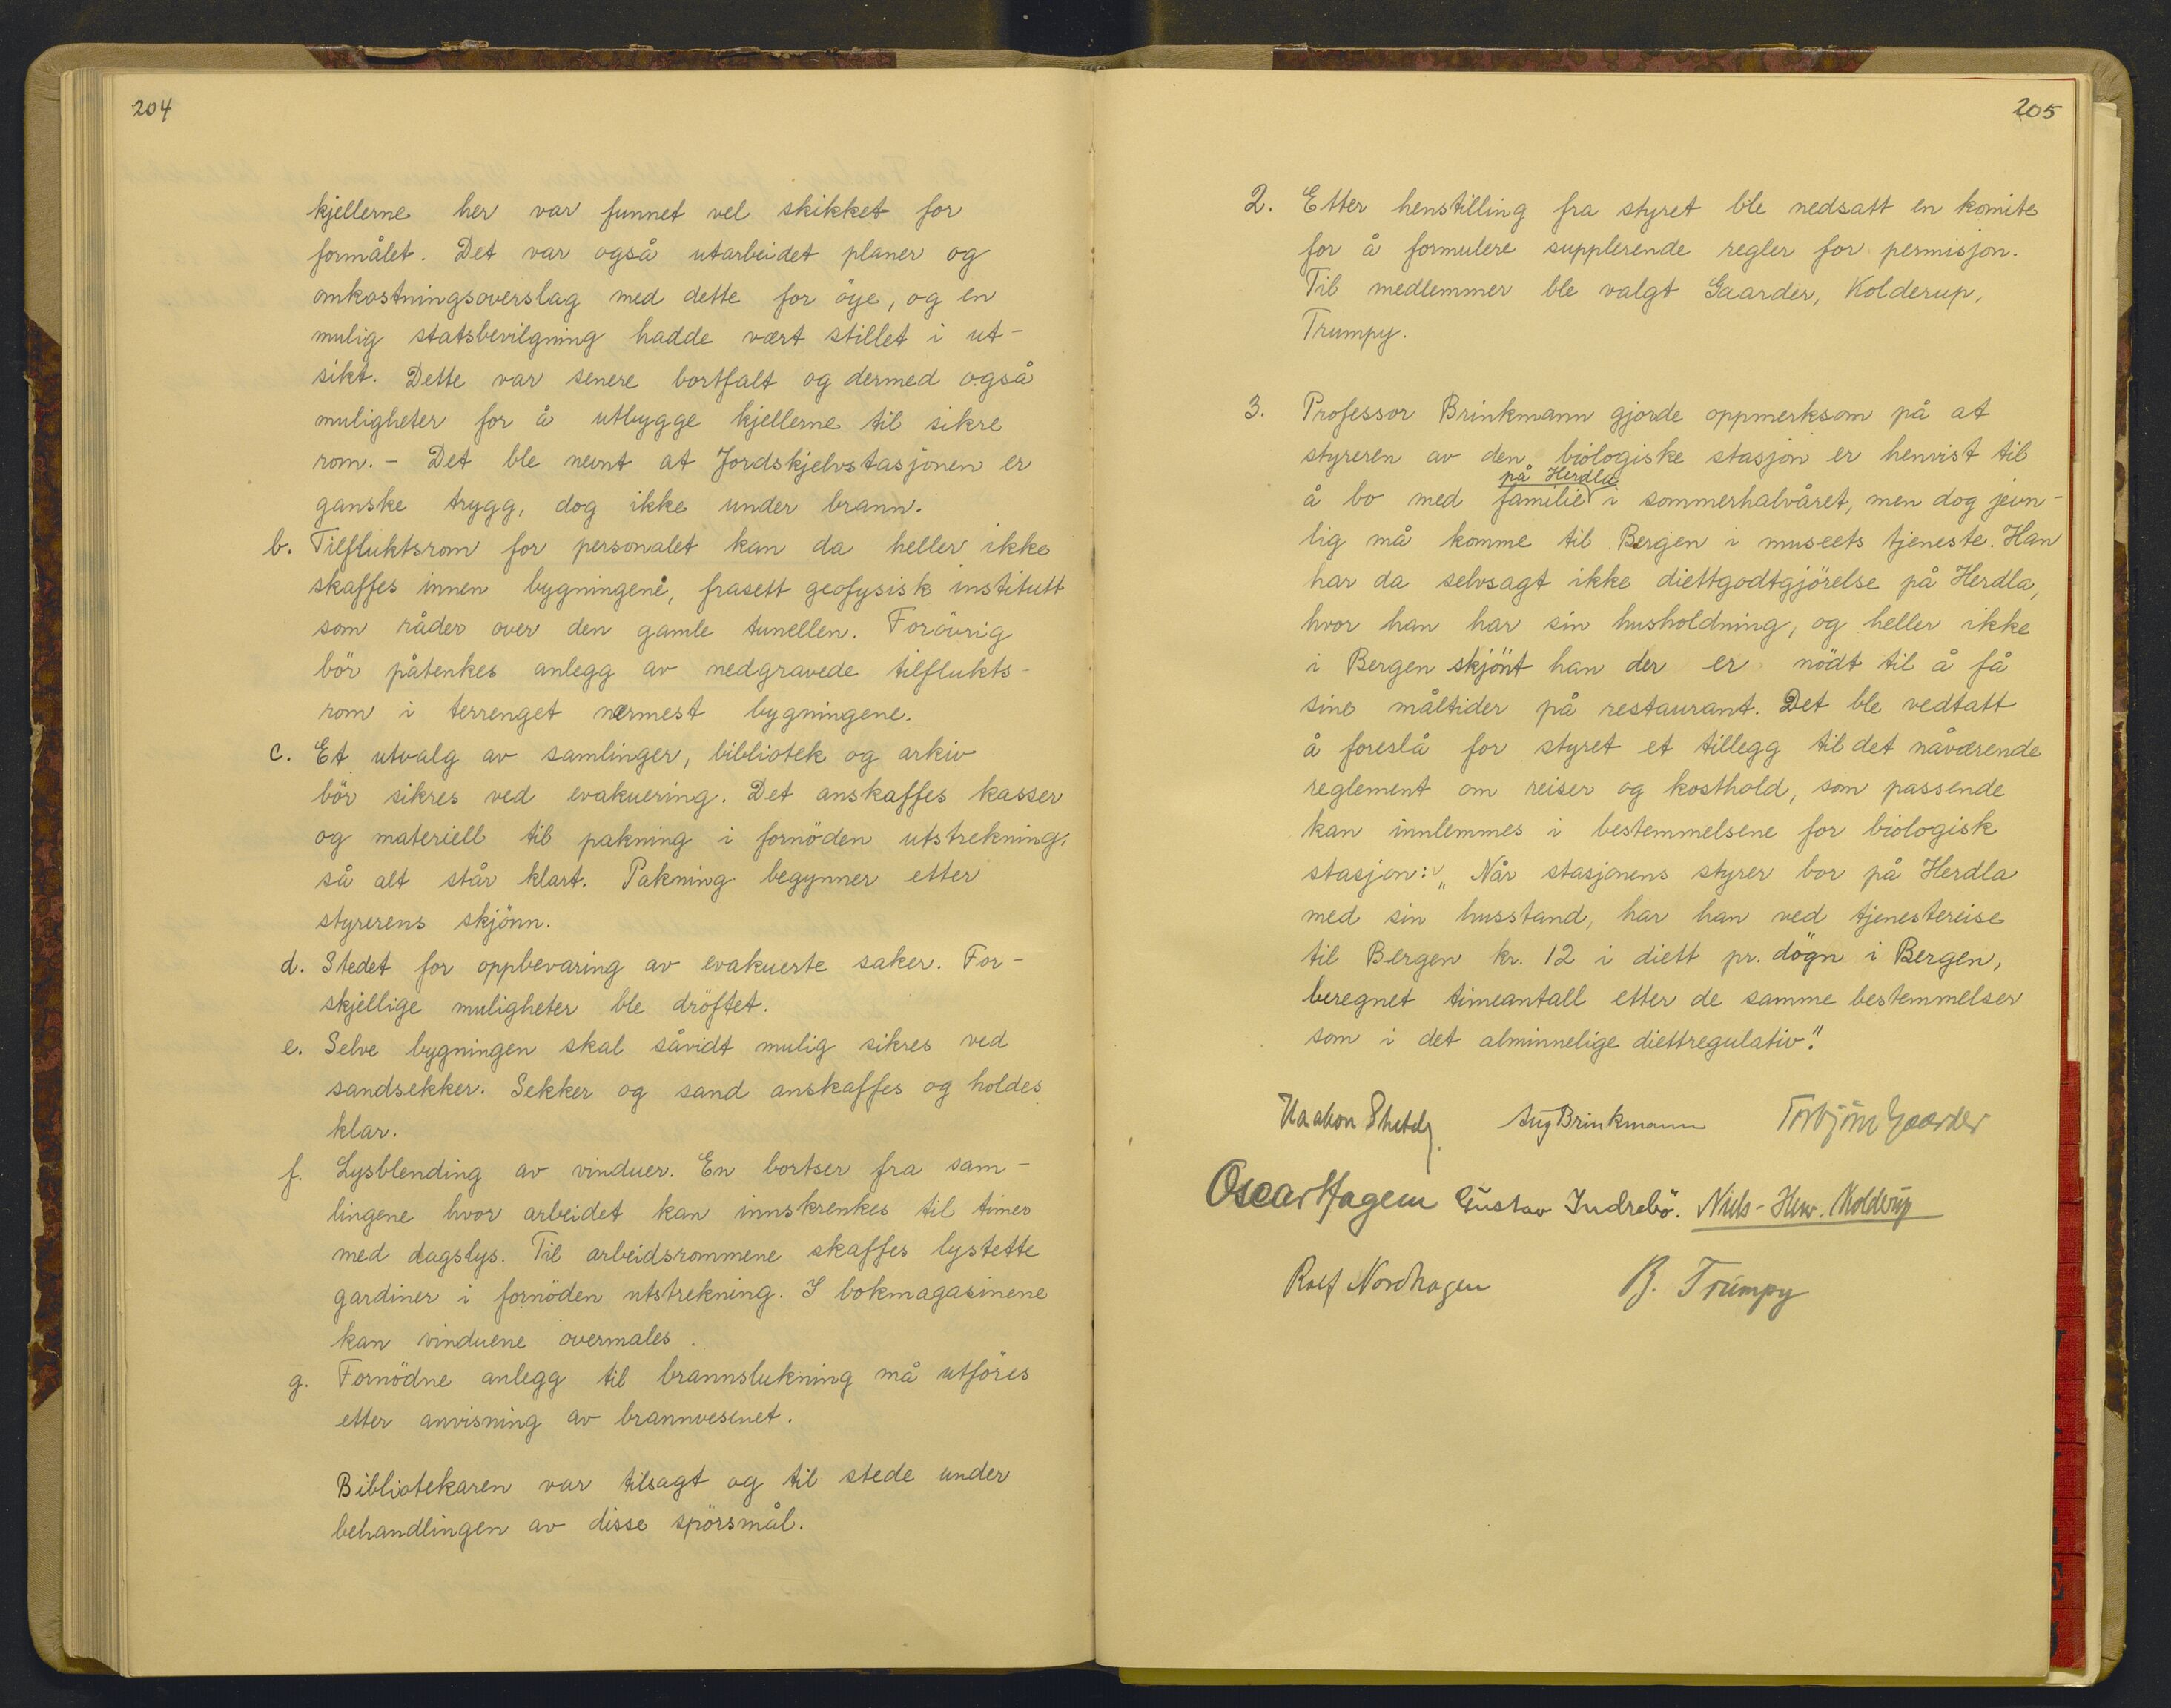 204
kjellerne her var funnet vel skikket for
formålet. Det var også utarbeidet planer og
omkostningsoverslag med dette for öye, og en
mulig statsbevilgning hadde vært stillet i ut-
sikt. Dette var senere bortfalt og dermed også
muligheter for å utbygge kjellerne til sikre
rom. - Det ble nevnt at Jordskjelvstasjonen er
ganske trygg, dog ikke under brann.
b. Tilfluktsrom for personalet kan da heller ikke
skaffes innen bygningene, frasett geofysisk institutt
som råder over den gamle tunellen. Forövrig
bör påtenkes anlegg av nedgravede tilflukts-
rom i terrenget nærmest bygningene.
c. Et utvalg av samlinger, bibliotek og arkiv
bör sikres ved evakuering. Det anskaffes kasser
og materiell til pakning i fornöden utstrekning,
så alt står klart. Pakning begynner etter
styrerens skjönn.
d. Stedet for oppbevaring av evakuerte saker. For-
skjellige muligheter ble dröftet.
e. Selve bygningen skal såvidt mulig sikres ved
sandsekker. Sekker og sand anskaffes og holdes
klar.
f. Lysblending av vinduer. En bortser fra sam-
lingene hvor arbeidet kan innskrenkes til timer
med dagslys. Til arbeidsrommene skaffes lystette
gardiner i fornöden utstrekning. I bokmagasinene
kan vinduene overmales.
g. Fornödne anlegg til brannslukning må utföres
etter anvisning av brannvesenet.
Bibliotekaren var tilsagt og til stede under
behandlingen av disse spörsmål.
205
2. Etter henstilling fra styret ble nedsatt en komite
for å formulere supplerende regler for permisjon.
Til medlemmer ble valgt Gaarder, Kolderup,
Trumpy.
3. Professor Brinkmann gjorde oppmerksom på at
styreren av den biologiske stasjon er henvist til
på Herdla
å bo med familie i sommerhalvåret, men dog jevn-
lig må komme til Bergen i museets tjeneste. Han
har da selvsagt ikke diettgodtgjörelse på Herdla,
hvor han har sin husholdning, og heller ikke
i Bergen skjönt han der er nödt til å få
sine måltider på restaurant. Det ble vedtatt
å foreslå for styret et tillegg til det nåværende
reglement om reiser og kosthold, som passende
kan innlemmes i bestemmelsene for biologisk
stasjon: „Når stasjonens styrer bor på Herdla
med sin husstand, har han ved tjenestereise
til Bergen kr. 12 i diett pr. dögn i Bergen,
beregnet timeantall etter de samme bestemmelser
som i det alminnelige diettregulativ."
Haakon Shetelig Aug Brinkmann Torbjörn Gaarder
Oscar Hagem Gustav Indrebö. Niels-Henr. Kolderup
Rolf Nordhagen B. Trumpy